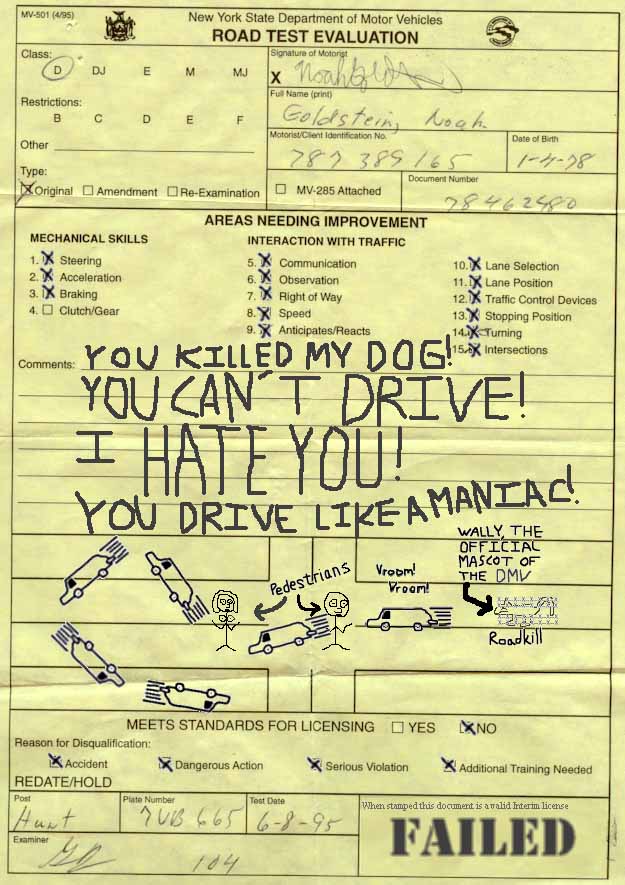 MV-501 (4/95)
New York State Department of Motor Vehicles
ROAD TEST EVALUATION
Class:
D DJ E M MJ
Restrictions:
B C D E F
Other
Type:
Original Amendment Re-Examination
Signature of Motorist
X
Full Name (print)
Goldstein, Noah
Motorist/Client Identification No.
787 389 165
Date of Birth
1-4-78
MV-285 Attached
Document Number
78462480
AREAS NEEDING IMPROVEMENT
MECHANICAL SKILLS
1. Steering
2. Acceleration
3. Braking
4. Clutch/Gear
INTERACTION WITH TRAFFIC
5. Communication
6. Observation
7. Right of Way
8. Speed
9. Anticipates/Reacts
10. Lane Selection
11. Lane Position
12. Traffic Control Devices
13. Stopping Position
14. Turning
15. Intersections
Comments: YOU KILLED MY DOG!
YOU CAN'T DRIVE!
I HATE YOU!
YOU DRIVE LIKE A MANIAC!
Pedestrians
Vroom!
Vroom!
WALLY, THE
OFFICIAL
MASCOT OF
THE DMV
Roadkill
MEETS STANDARDS FOR LICENSING YES NO
Reason for Disqualification:
Accident Dangerous Action Serious Violation Additional Training Needed
REDATE/HOLD
Post
Hunt
Plate Number
7UB 665
Test Date
6-8-95
Examiner
104
When stamped this document is a valid Interim license
FAILED